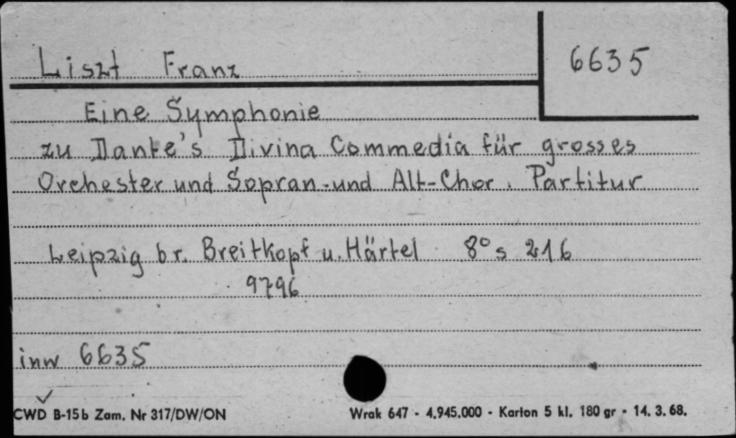 Liszt Franz
6635
Eine Symphonie
zu Dante's Divina Commedia für grosses
Orchester und Sopran-und Alt-Chor. Partitur
Leipzig br. Breitkopf u. Härtel 8° s 216
9796
inw 6635
CWD B-15b Zam. Nr 317/DW/ON
Wrak 647 - 4.945.000 - Karton 5 kl. 180 gr - 14. 3. 68.